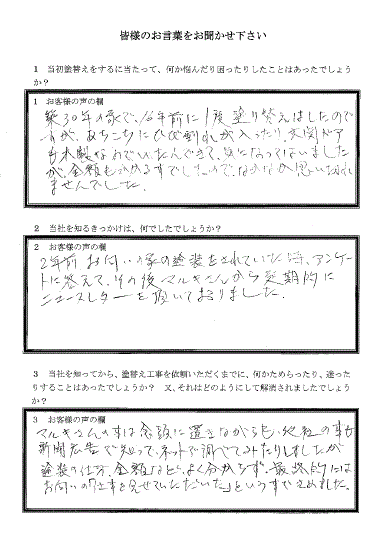 皆様のお言葉をお聞かせ下さい
1 当初塗替えをするに当たって、何か悩んだり困ったりしたことはあったでしょう
か?
1 お客様の声の欄
築30年の家で、16年前に1度塗り答えはしたので
すが、あちこちにひび割れが入ったり、玄関ドア
も木製なのでいたんできて、気になってはいました
が、金額もかかる事でしたので、なかなか思い切れ
ませんでした。
2 当社を知るきっかけは、何でしたでしょうか?
2 お客様の声の欄
2年前 お向いの家の塗装をされていた時、アンケー
トに答えて、その後マルキさんから定期的に
ニュースレターを頂いておりました。
3 当社を知ってから、塗替え工事を依頼いただくまでに、何かためらったり、迷った
りすることはあったでしょうか? 又、それはどのようにして解消されましたでしょう
か?
3 お客様の声の欄
マルキさんの事は念頭に置きながらも、他社の事も
新聞広告で知って、ネットで調べてみたりしましたが
塗装の仕方、金額など、よく分からず、最終的には
お向いの「仕事を見せていただいた」という事で決めました。